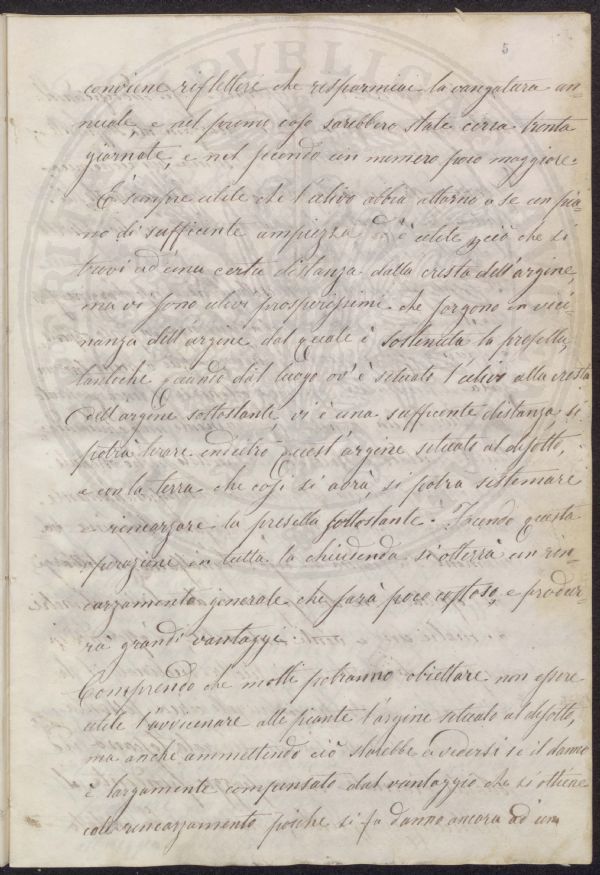 5
conviene riflettere che risparmiai la vangatura an-
nuale, e nel primo caso sarebbero state circa trenta
giornate, e nel secondo un numero poco maggiore.
È sempre utile che l'ulivo abbia attorno a se un pia-
no di sufficiente ampiezza ed è utile che si
trovi ad una certa distanza dalla cresta dell'argine,
ma vi sono ulivi prosperissimi che sorgono in vici-
nanza dell'argine dal quale è sostenuta la presella,
tantoche quando dal luogo ov'è situato l'ulivo alla cresta
dell'argine sottostante, vi è una sufficente distanza, si
potrà tirare indietro quest'argine situato al disotto,
e con la terra che così si avrà, si potrà sistemare
e rincarzare la presella sottostante. Facendo questa
operazione in tutta la chiudenda si otterrà un rin-
carzamento generale che sarà poco costoso, e produr-
rà grandi vantaggi.
Comprendo che molti potranno obiettare non essere
utile l'avvicenare alle piante l'argine situato al disotto,
ma anche ammettendo ciò starebbe a vedersi se il danno
è largamente compensato dal vantaggio che si ottiene
col rincarzamento poiche si fa danno ancora ad un